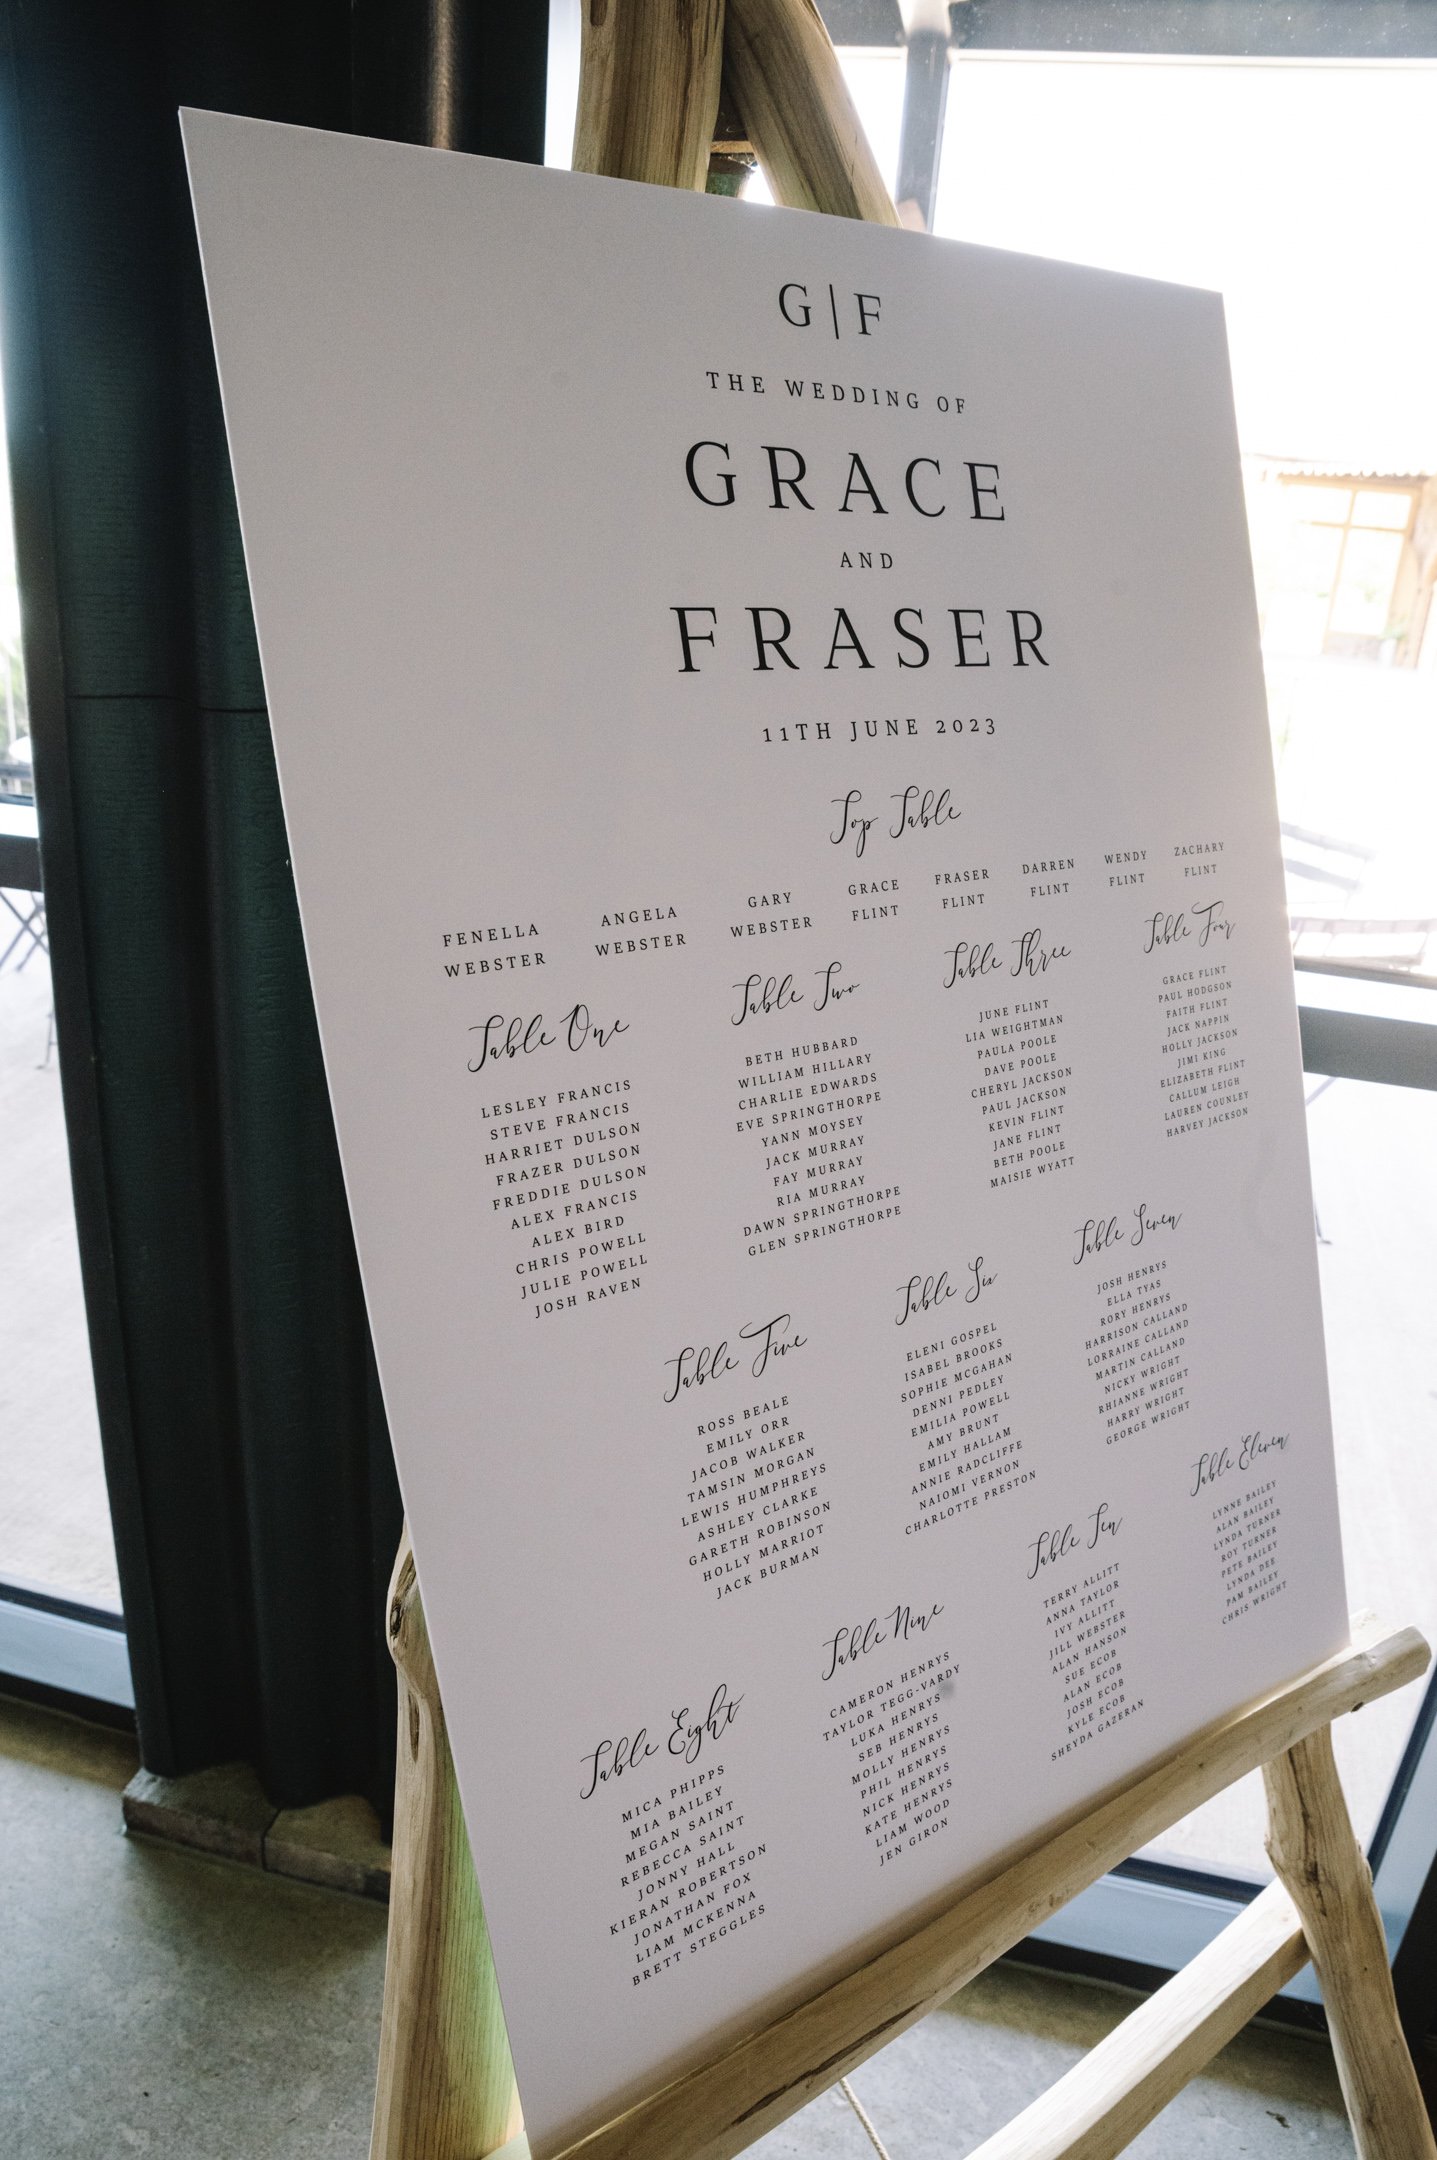 G|F
THE WEDDING OF
GRACE
AND
FRASER
11TH JUNE 2023
Top Table
FENELLA WEBSTER
ANGELA WEBSTER
GARY WEBSTER
GRACE FLINT
FRASER FLINT
DARREN FLINT
WENDY FLINT
ZACHARY FLINT
Table One
LESLEY FRANCIS
STEVE FRANCIS
HARRIET DULSON
FRAZER DULSON
FREDDIE DULSON
ALEX FRANCIS
ALEX BIRD
CHRIS POWELL
JULIE POWELL
JOSH RAVEN
Table Two
BETH HUBBARD
WILLIAM HILLARY
CHARLIE EDWARDS
EVE SPRINGTHORPE
YANN MOYSEY
JACK MURRAY
FAY MURRAY
RIA MURRAY
DAWN SPRINGTHORPE
GLEN SPRINGTHORPE
Table Three
JUNE FLINT
LIA WEIGHTMAN
PAULA POOLE
DAVE POOLE
CHERYL JACKSON
PAUL JACKSON
KEVIN FLINT
JANE FLINT
BETH POOLE
MAISIE WYATT
Table Four
GRACE FLINT
PAUL HODGSON
FAITH FLINT
JACK NAPPIN
HOLLY JACKSON
JIMI KING
ELIZABETH FLINT
CALLUM LEIGH
LAUREN COUNLEY
HARVEY JACKSON
Table Five
ROSS BEALE
EMILY ORR
JACOB WALKER
TAMSIN MORGAN
LEWIS HUMPHREYS
ASHLEY CLARKE
GARETH ROBINSON
HOLLY MARRIOT
JACK BURMAN
Table Six
ELENI GOSPEL
ISABEL BROOKS
SOPHIE MCGAHAN
DENNI PEDLEY
EMILIA POWELL
AMY BRUNT
EMILY HALLAM
ANNIE RADCLIFFE
NAIOMI VERNON
CHARLOTTE PRESTON
Table Seven
JOSH HENRYS
ELLA TYAS
RORY HENRYS
HARRISON CALLAND
LORRAINE CALLAND
MARTIN CALLAND
NICKY WRIGHT
RHIANNE WRIGHT
HARRY WRIGHT
GEORGE WRIGHT
Table Eight
MICA PHIPPS
MIA BAILEY
MEGAN SAINT
REBECCA SAINT
JONNY HALL
KIERAN ROBERTSON
JONATHAN FOX
LIAM MCKENNA
BRETT STEGGLES
Table Nine
CAMERON HENRYS
TAYLOR TEGG-VARDY
LUKA HENRYS
SEB HENRYS
MOLLY HENRYS
PHIL HENRYS
NICK HENRYS
KATE HENRYS
LIAM WOOD
JEN GIRON
Table Ten
TERRY ALLITT
ANNA TAYLOR
IVY ALLITT
JILL WEBSTER
ALAN HANSON
SUE ECOB
ALAN ECOB
JOSH ECOB
KYLE ECOB
SHEYDA GAZERAN
Table Eleven
LYNNE BAILEY
ALAN BAILEY
LYNDA TURNER
ROY TURNER
PETE BAILEY
LYNDA DEE
PAM BAILEY
CHRIS WRIGHT